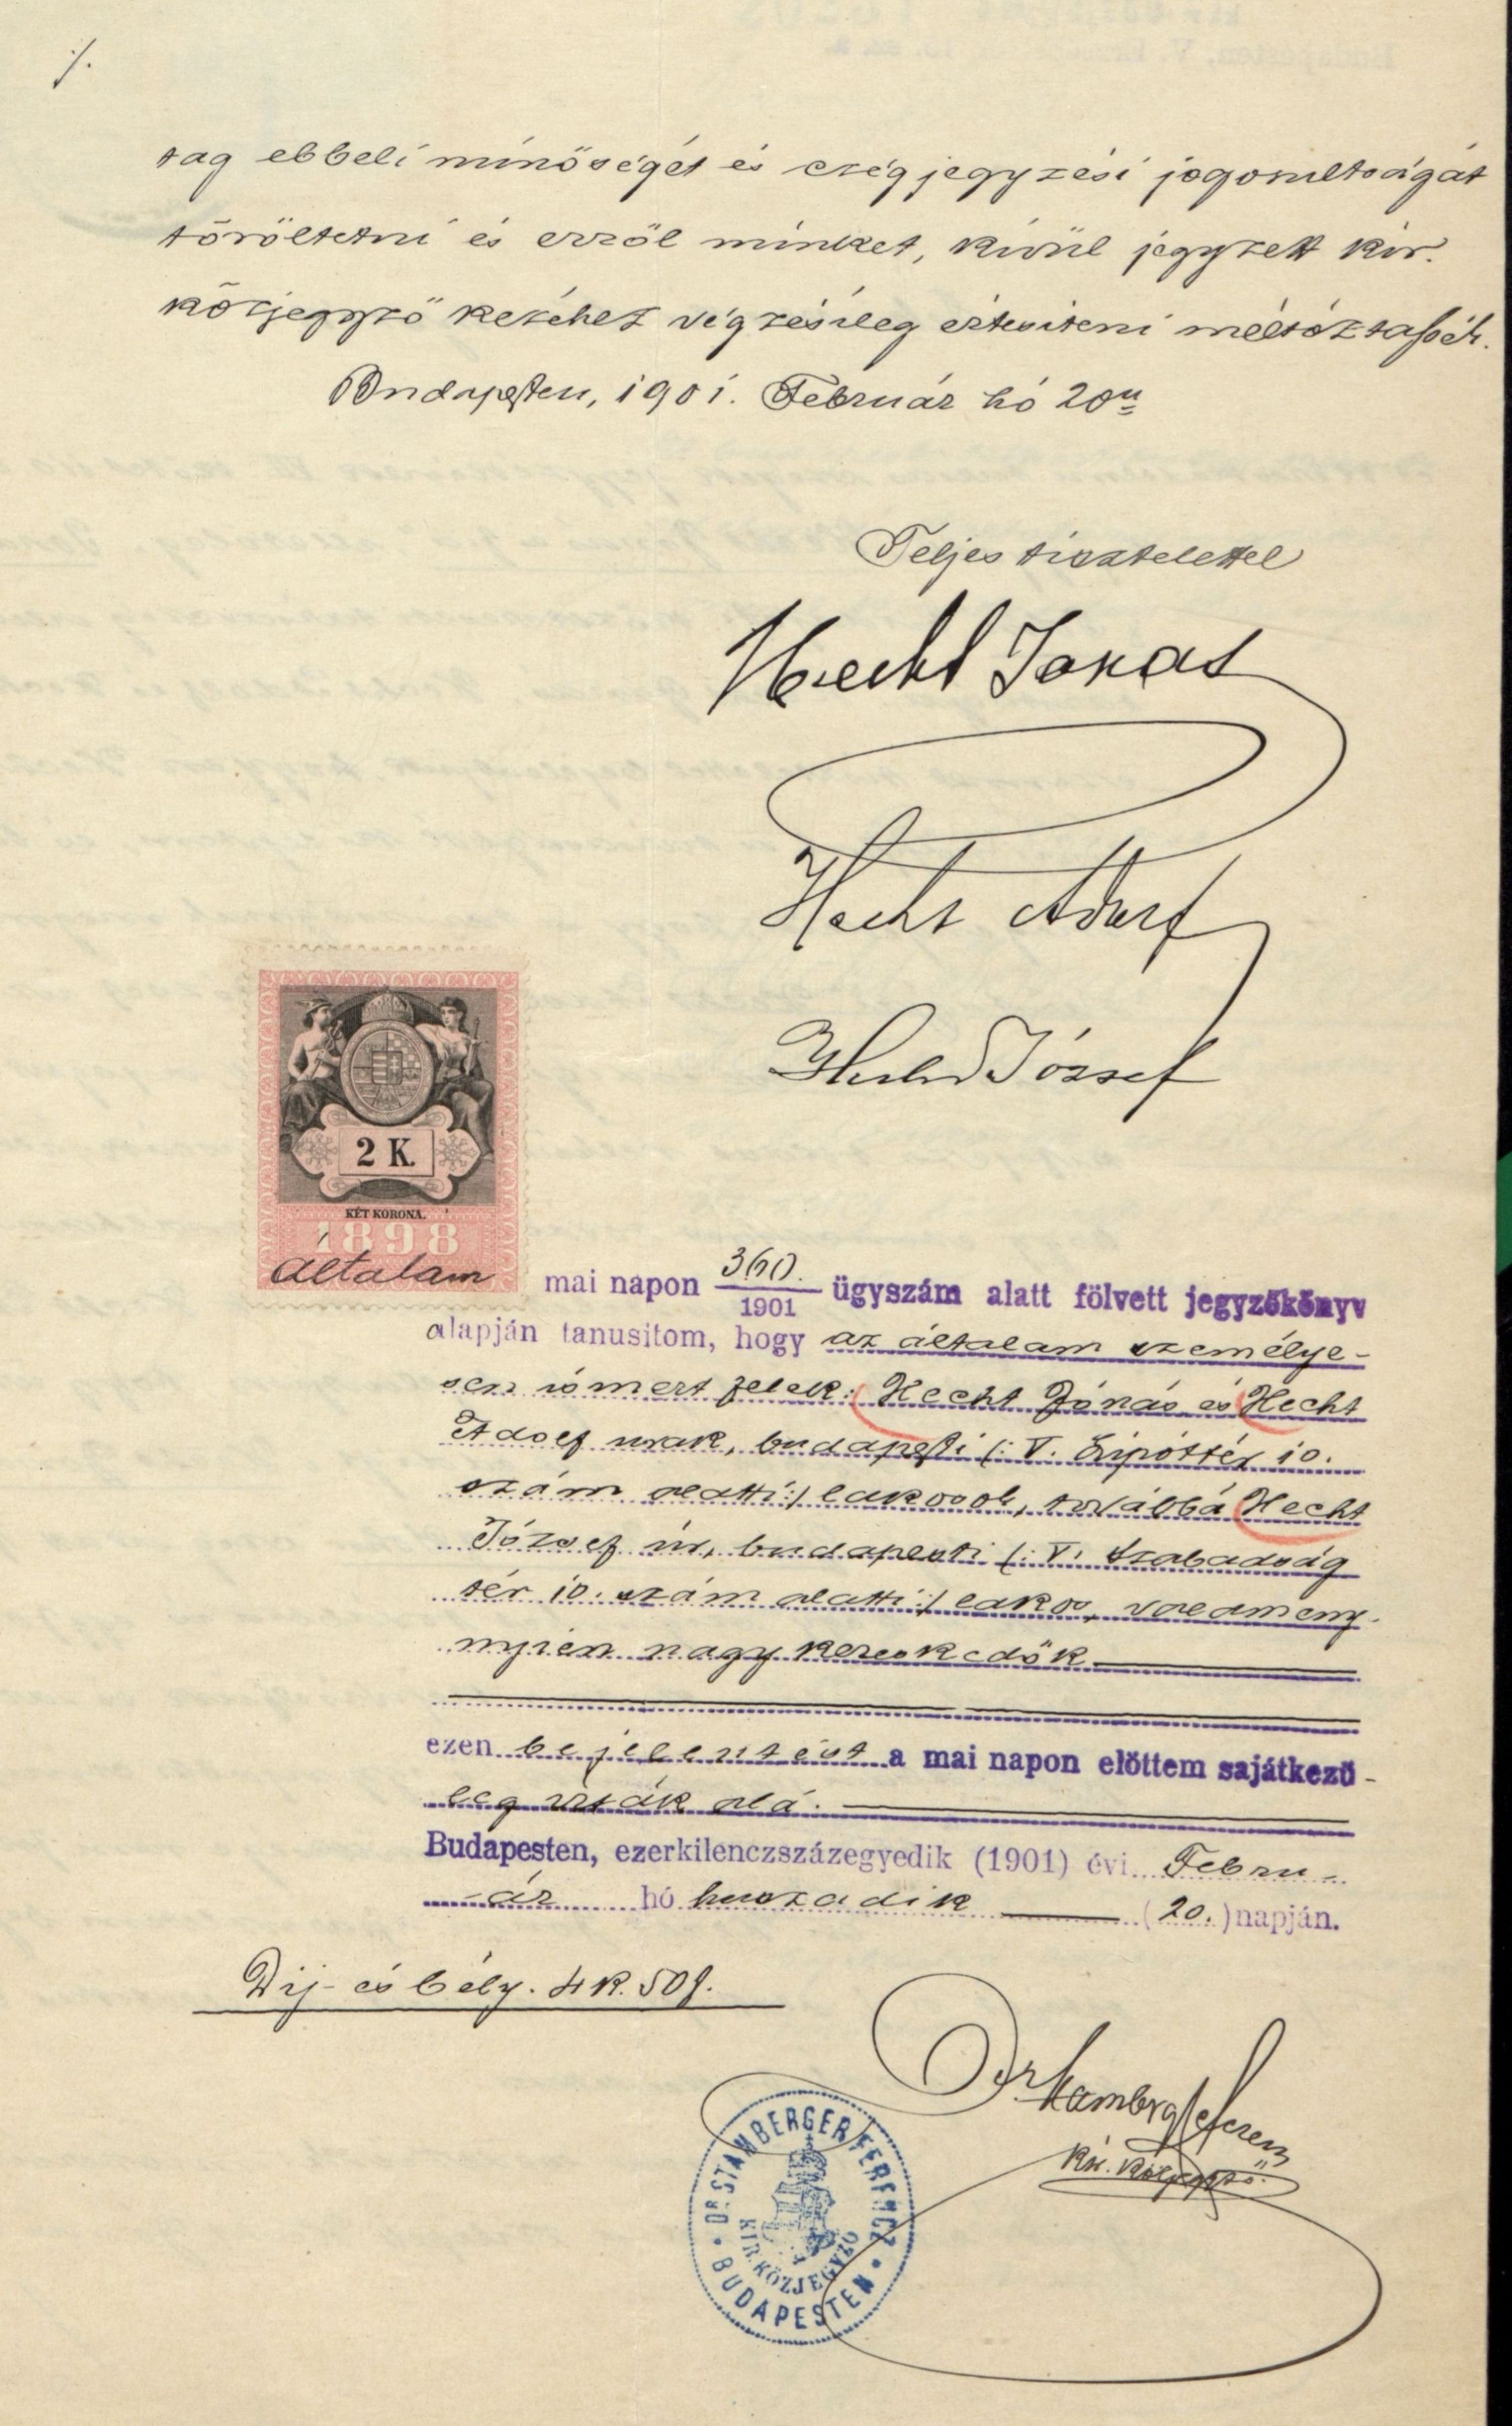 ./.
tag ebbeli minőségét és czégjegyzési jogosultságát
töröltetni és erről minket, kivül jegyzett kir.
közjegyző kezéhez végzésileg értesiteni méltóztassék.
Budapesten, 1901. Február hó 20án
Teljes tisztelettel
Hecht Jonas
Hecht Adolf
Hecht József
2 K.
KÉT KORONA.
1898
általam mai napon 360./1901 ügyszám alatt fölvett jegyzőkönyv
alapján tanusitom, hogy az általam személye-
sen ismert felek: Hecht Jónás és Hecht
Adolf urak, budapesti /: V. Lipóttér 10.
szám alatti :/ lakosok, továbbá Hecht
József úr, budapesti /: V. Szabadság
tér 10. szám alatti :/ lakos, valameny-
nyien nagykereskedők
ezen bejelentést a mai napon előttem sajátkezü-
leg irták alá.
Budapesten, ezerkilenczszázegyedik (1901) évi Febru-
ár hó huszadik (20.) napján.
Dij- és bély. 4 K. 50 f.
Dr Stamberger Ferencz
kir. közjegyző.
DR. STAMBERGER FERENCZ
KIR. KÖZJEGYZŐ
BUDAPESTEN